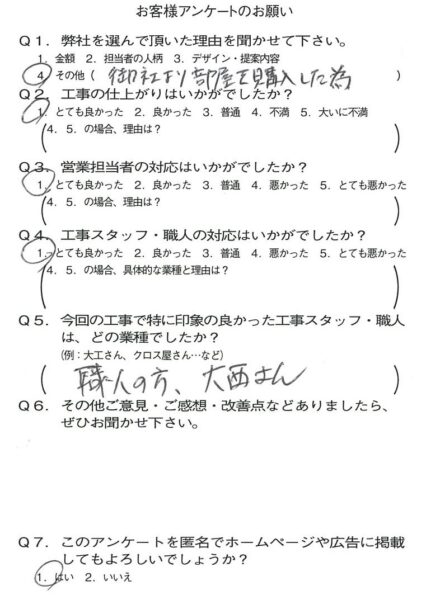 お客様アンケートのお願い
Q1．弊社を選んで頂いた理由を聞かせて下さい。
1．金額　2．担当者の人柄　3．デザイン・提案内容
4．その他（御社より部屋を購入した為）
Q2．工事の仕上がりはいかがでしたか？
1．とても良かった　2．良かった　3．普通　4．不満　5．大いに不満
（4．5．の場合、理由は？　）
Q3．営業担当者の対応はいかがでしたか？
1．とても良かった　2．良かった　3．普通　4．悪かった　5．とても悪かった
（4．5．の場合、理由は？　）
Q4．工事スタッフ・職人の対応はいかがでしたか？
1．とても良かった　2．良かった　3．普通　4．悪かった　5．とても悪かった
（4．5．の場合、具体的な業種と理由は？　）
Q5．今回の工事で特に印象の良かった工事スタッフ・職人
は、どの業種でしたか？
（例：大工さん、クロス屋さん…など）
（職人の方、大西さん）
Q6．その他ご意見・ご感想・改善点などありましたら、
ぜひお聞かせ下さい。
Q7．このアンケートを匿名でホームページや広告に掲載
してもよろしいでしょうか？
1．はい　2．いいえ